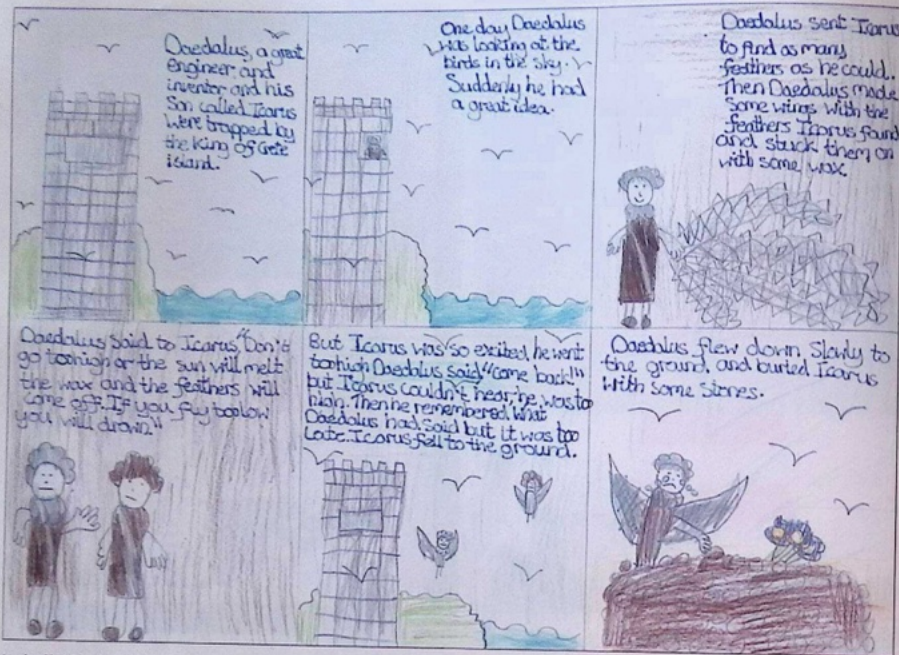 Daedalus, a great
engineer and
inventor and his
Son called Icarus
were trapped by
the King of Crete
island.
One day Daedalus
was looking at the
birds in the sky.
Suddenly he had
a great idea.
Daedalus sent Icarus
to find as many
feathers as he could.
Then Daedalus made
some wings with the
feathers Icarus found
and stuck them on
with some wax.
Daedalus said to Icarus "Don't
go too high or the sun will melt
the wax and the feathers will
come off. If you fly too low
you will drown."
But Icarus was so excited, he went
too high Daedalus said "come back!"
but Icarus couldn't hear, he was too
high. Then he remembered what
Daedalus had said but it was too
late. Icarus fell to the ground.
Daedalus flew down, Slowly to
the ground, and buried Icarus
with some stones.